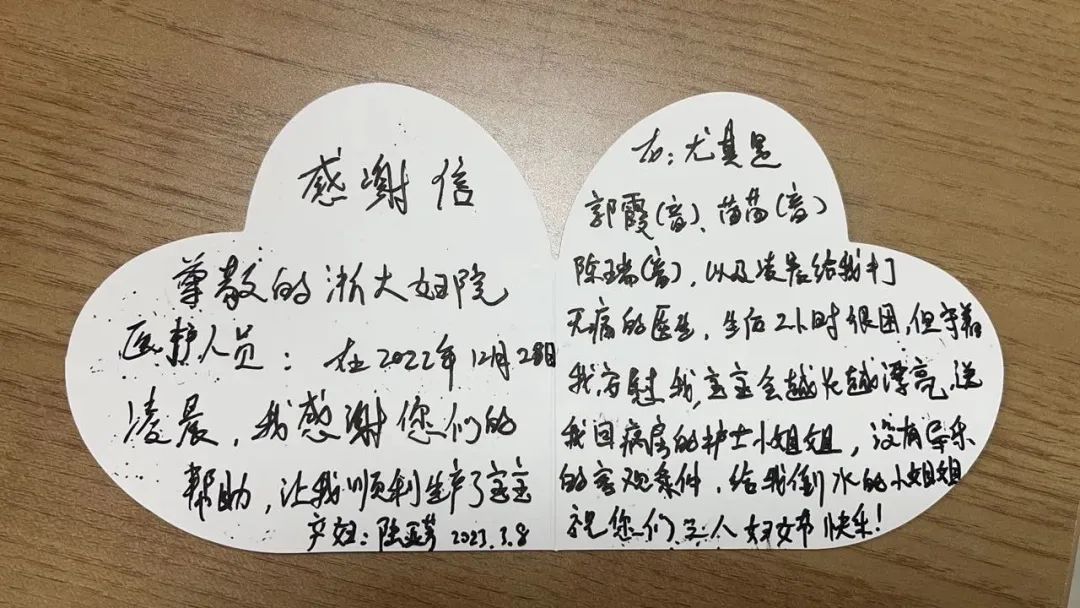 感谢信
尊敬的浙大妇院
医护人员：在2022年12月28日
凌晨，我感谢您们的
帮助，让我顺利生产了宝宝
产妇：陈亚芳 2023.3.8
to：尤其是
郭霞(音)、苗苗(音)
陈瑞(音)，以及凌晨给我打
无痛的医生，生后2小时很困，但守着
我安慰我，宝宝会越长越漂亮，送
我回病房的护士小姐姐，没有导乐
的客观条件，给我倒水的小姐姐
祝您们 人妇女节快乐！